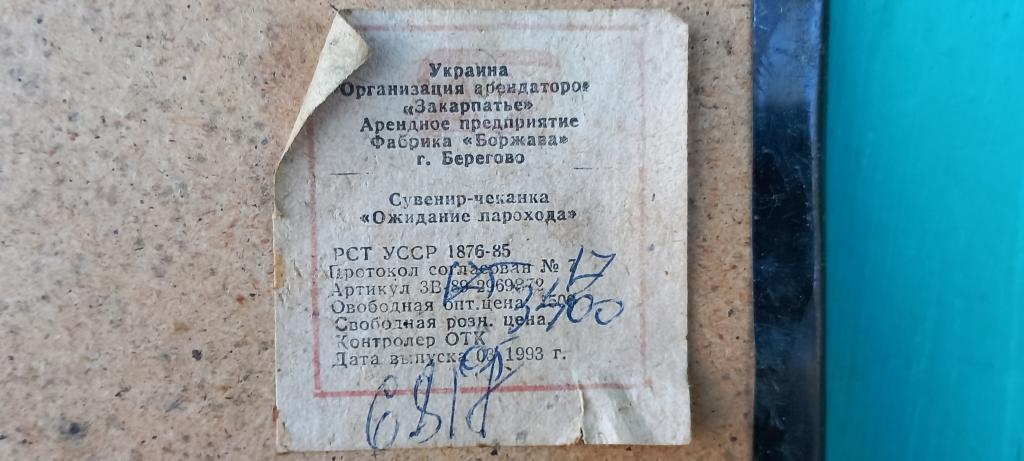 Украина
Организация арендаторов
«Закарпатье»
Арендное предприятие
Фабрика «Боржава»
г. Берегово
Сувенир-чеканка
«Ожидание парохода»
РСТ УССР 1876-85
Протокол согласован № 7 17
Артикул ЗВ-89-2969
Овободная опт.цена
Свободная розн. цена 3400
Контролер ОТК
Дата выпуска 1993 г.